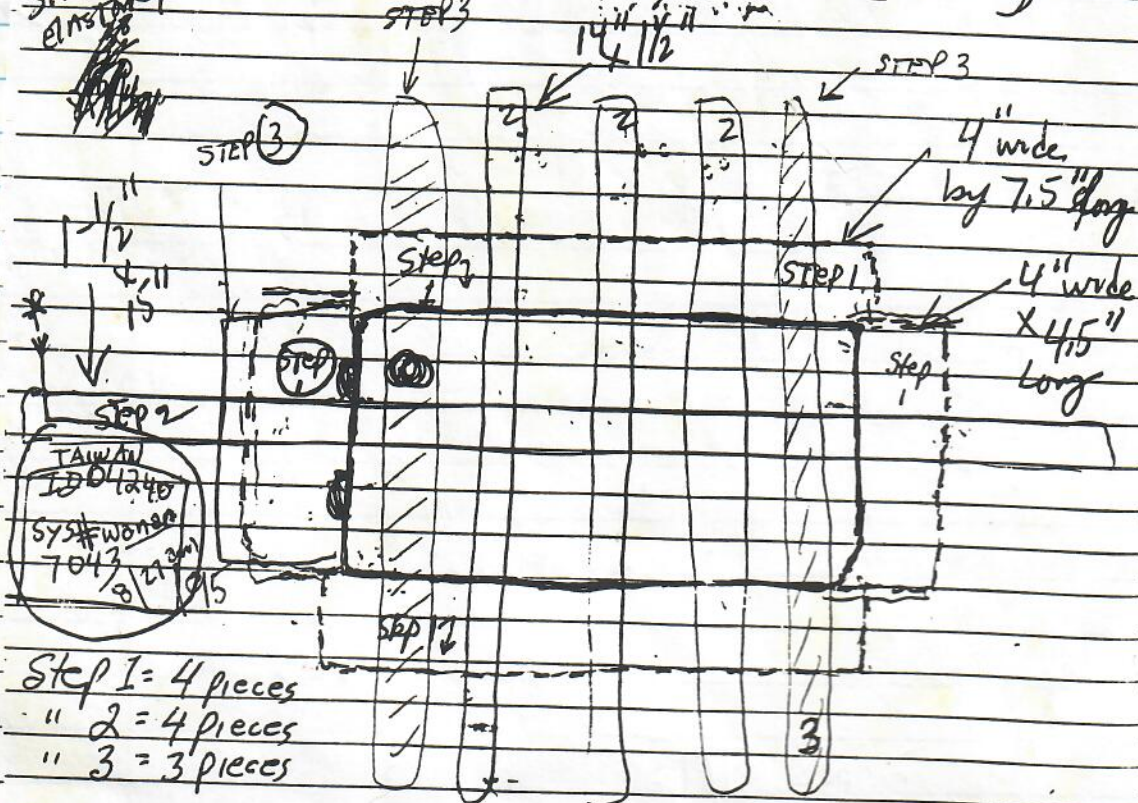 elastic
STEP 3
14" x 1 1/2"
STEP 3
2
2
2
STEP 3
4" wide
by 7.5" long
1 1/2"
x
15"
*
Step 1
STEP 1
4" wide
x 4.5"
Long
STEP 1
Step 1
Step 2
TAIWAN
ID 041240
SYS# woman
7043
8
27
Step 1
3
Step 1 = 4 pieces
" 2 = 4 pieces
" 3 = 3 pieces